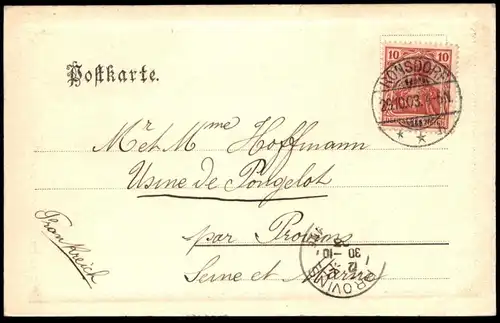 10 10
RONSDORF
29.10.03.
* *
Postkarte.
Mr et Mme Hoffmann
Usine de Pongelot
par Provins
Seine et Marne
Frankreich
PROVINS
12
30 -10